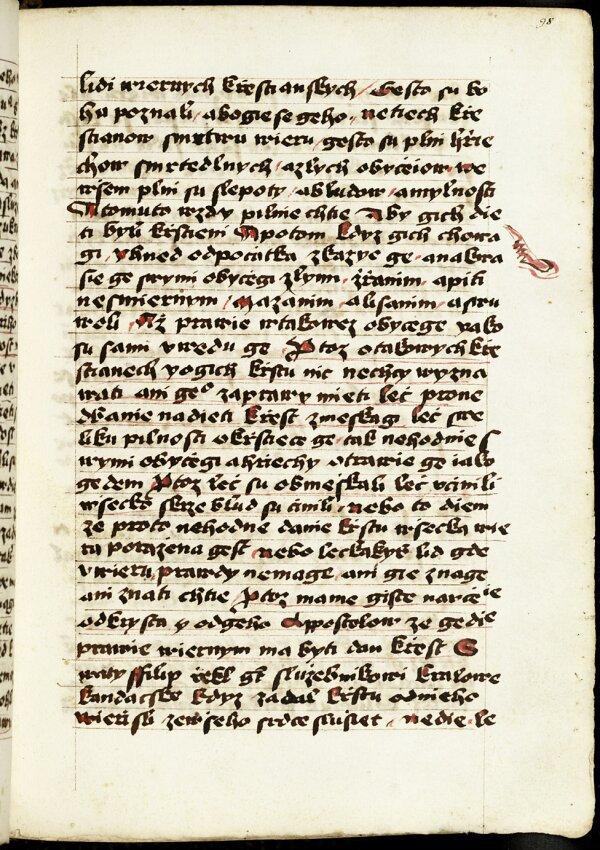 98
lidi wiernych krzestianskych Gesto su bo
hu poznali a bogie se geho netiech krze
stianow smrtwu wieru gesto su plni hrzie
chow smrtedlnych azlych obyczeiow we
wssem plni su slepoty a bludow amylnosti
A tomuto wzdy pilnie chtie Aby gich die
ti byli krztieni A potom kdyz gich chowa
gi yhned odpoczatka zkazye ge anakwa
sie ge swymi obyczegi zlymi zranim apiti
nesmiernym mazanim alisanim aswu
woli Az prawie wtakowez obyczege yako
su sami vwedu ge Protoz otakowych krze
stianech yogich krztu nic nechcy wyzna
wati ani geo zaprawy mieti lecz prone
dbanie nadieti krzest zmeskagi lecz swe
liku pilnosti okrztiece ge tak nehodnie s
wymi obyczegi ahrziechy otrawie ge iako
gedem Protoz lecz su obmeskali lecz vczinili
wsecko skrze blud su czinili nebo to diem
ze proto nehodne danie krztu wsecka wie
ra porazena gest nebo leckakys lid gde
vwieru prawdy nemage ani gie znage
ani znati chtie Protoz mame giste narzcenie
odkrysta y odgeho Apostolow ze gedie
prawie wiernym ma byti dan krzest S
waty ffilip rzekl gt sluzebnikowi kralowe
kandacske kdyz zadal krztu odnieho
wierzissli zewseho srdce slusiet nedie le